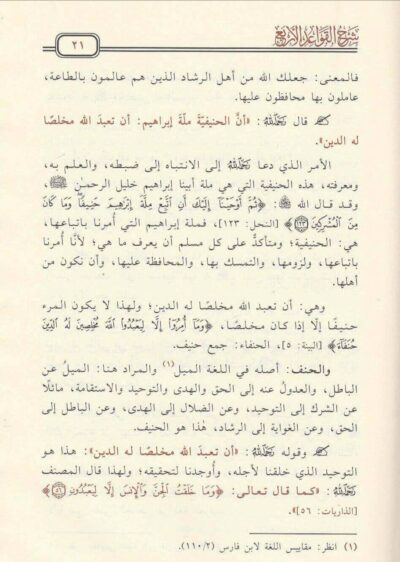 شرح القواعد الأربع
٢١
فالمعنى: جعلك الله من أهل الرشاد الذين هم عالمون بالطاعة،
عاملون بها محافظون عليها.
قال رحمه الله: «أنَّ الحنيفيَّة ملَّة إبراهيم: أن تعبد الله مخلصًا
له الدين».
الأمر الذي دعا رحمه الله إلى الانتباه إلى ضبطه، والعلم به،
ومعرفته، هذه الحنيفية التي هي ملة أبينا إبراهيم خليل الرحمٰن ﷺ،
وقد قال الله ﷻ: ﴿ثُمَّ أَوْحَيْنَا إِلَيْكَ أَنِ اتَّبِعْ مِلَّةَ إِبْرَاهِيمَ حَنِيفًا وَمَا كَانَ
مِنَ الْمُشْرِكِينَ ١٢٣﴾ [النحل: ١٢٣]، فملة إبراهيم التي أُمرنا باتباعها،
هي: الحنيفية؛ ومتأكدٌ على كل مسلم أن يعرف ما هي؛ لأنَّا أُمرنا
باتباعها، ولزومها، والتمسك بها، والمحافظة عليها، وأن نكون من
أهلها.
وهي: أن تعبد الله مخلصًا له الدين؛ ولهذا لا يكون المرء
حنيفًا إلَّا إذا كان مخلصًا، ﴿وَمَا أُمِرُوا إِلَّا لِيَعْبُدُوا اللَّهَ مُخْلِصِينَ لَهُ الدِّينَ
حُنَفَاءَ﴾ [البينة: ٥]، الحنفاء: جمع حنيف.
والحنف: أصله في اللغة الميل(١) والمراد هنا: الميلُ عن
الباطل، والعدولُ عنه إلى الحق والهدى والتوحيد والاستقامة، مائلًا
عن الشرك إلى التوحيد، وعن الضلال إلى الهدى، وعن الباطل إلى
الحق، وعن الغواية إلى الرشاد، هٰذا هو الحنيف.
وقوله رحمه الله: «أن تعبدَ الله مخلصًا له الدين»: هذا هو
التوحيد الذي خلقنا لأجله، وأُوجدنا لتحقيقه؛ ولهذا قال المصنف
رحمه الله: «كما قال تعالى: ﴿وَمَا خَلَقْتُ الْجِنَّ وَالْإِنْسَ إِلَّا لِيَعْبُدُونِ ٥٦﴾
[الذاريات: ٥٦]».
(١) انظر: مقاييس اللغة لابن فارس (١١٠/٢).